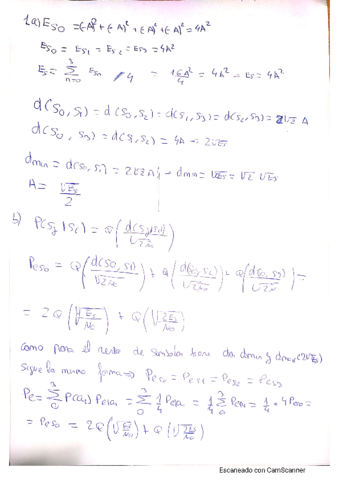 1a) E_S0 = (-A)² + (-A)² + (-A)² + (-A)² = 4A²
E_S0 = E_S1 = E_S2 = E_S3 = 4A²
E_s = Σ_{n=0}^{3} E_Sn / 4 = 16A²/4 = 4A² → E_s = 4A²
d(S0, S1) = d(S0, S2) = d(S1, S3) = d(S2, S3) = 2√2 A
d(S0, S3) = d(S1, S2) = 4A = 2√Es
dmin = d(S0, S1) = 2√2 A; → dmin = √2 √Es
A = √Es / 2
b) P(Sj | Si) = Q( d(Sj, Si) / √2No )
PeS0 = Q( d(S0, S1) / √2No ) + Q( d(S0, S2) / √2No ) + Q( d(S0, S3) / √2No ) =
= 2Q( √(Es/No) ) + Q( √(2Es/No) )
como para el resto de simbolos tiene dos dmin y dmax (2√Es)
sigue la misma forma ⇒ PeS0 = PeS1 = PeS2 = PeS3
Pe = Σ_0^3 P(Sn) PeSn = Σ_0^3 1/4 PeSn = 1/4 Σ_0^3 PeSn = 1/4 · 4PeS0 =
= PeS0 = 2Q( √(Es/No) ) + Q( √(2Es/No) )
Escaneado con CamScanner